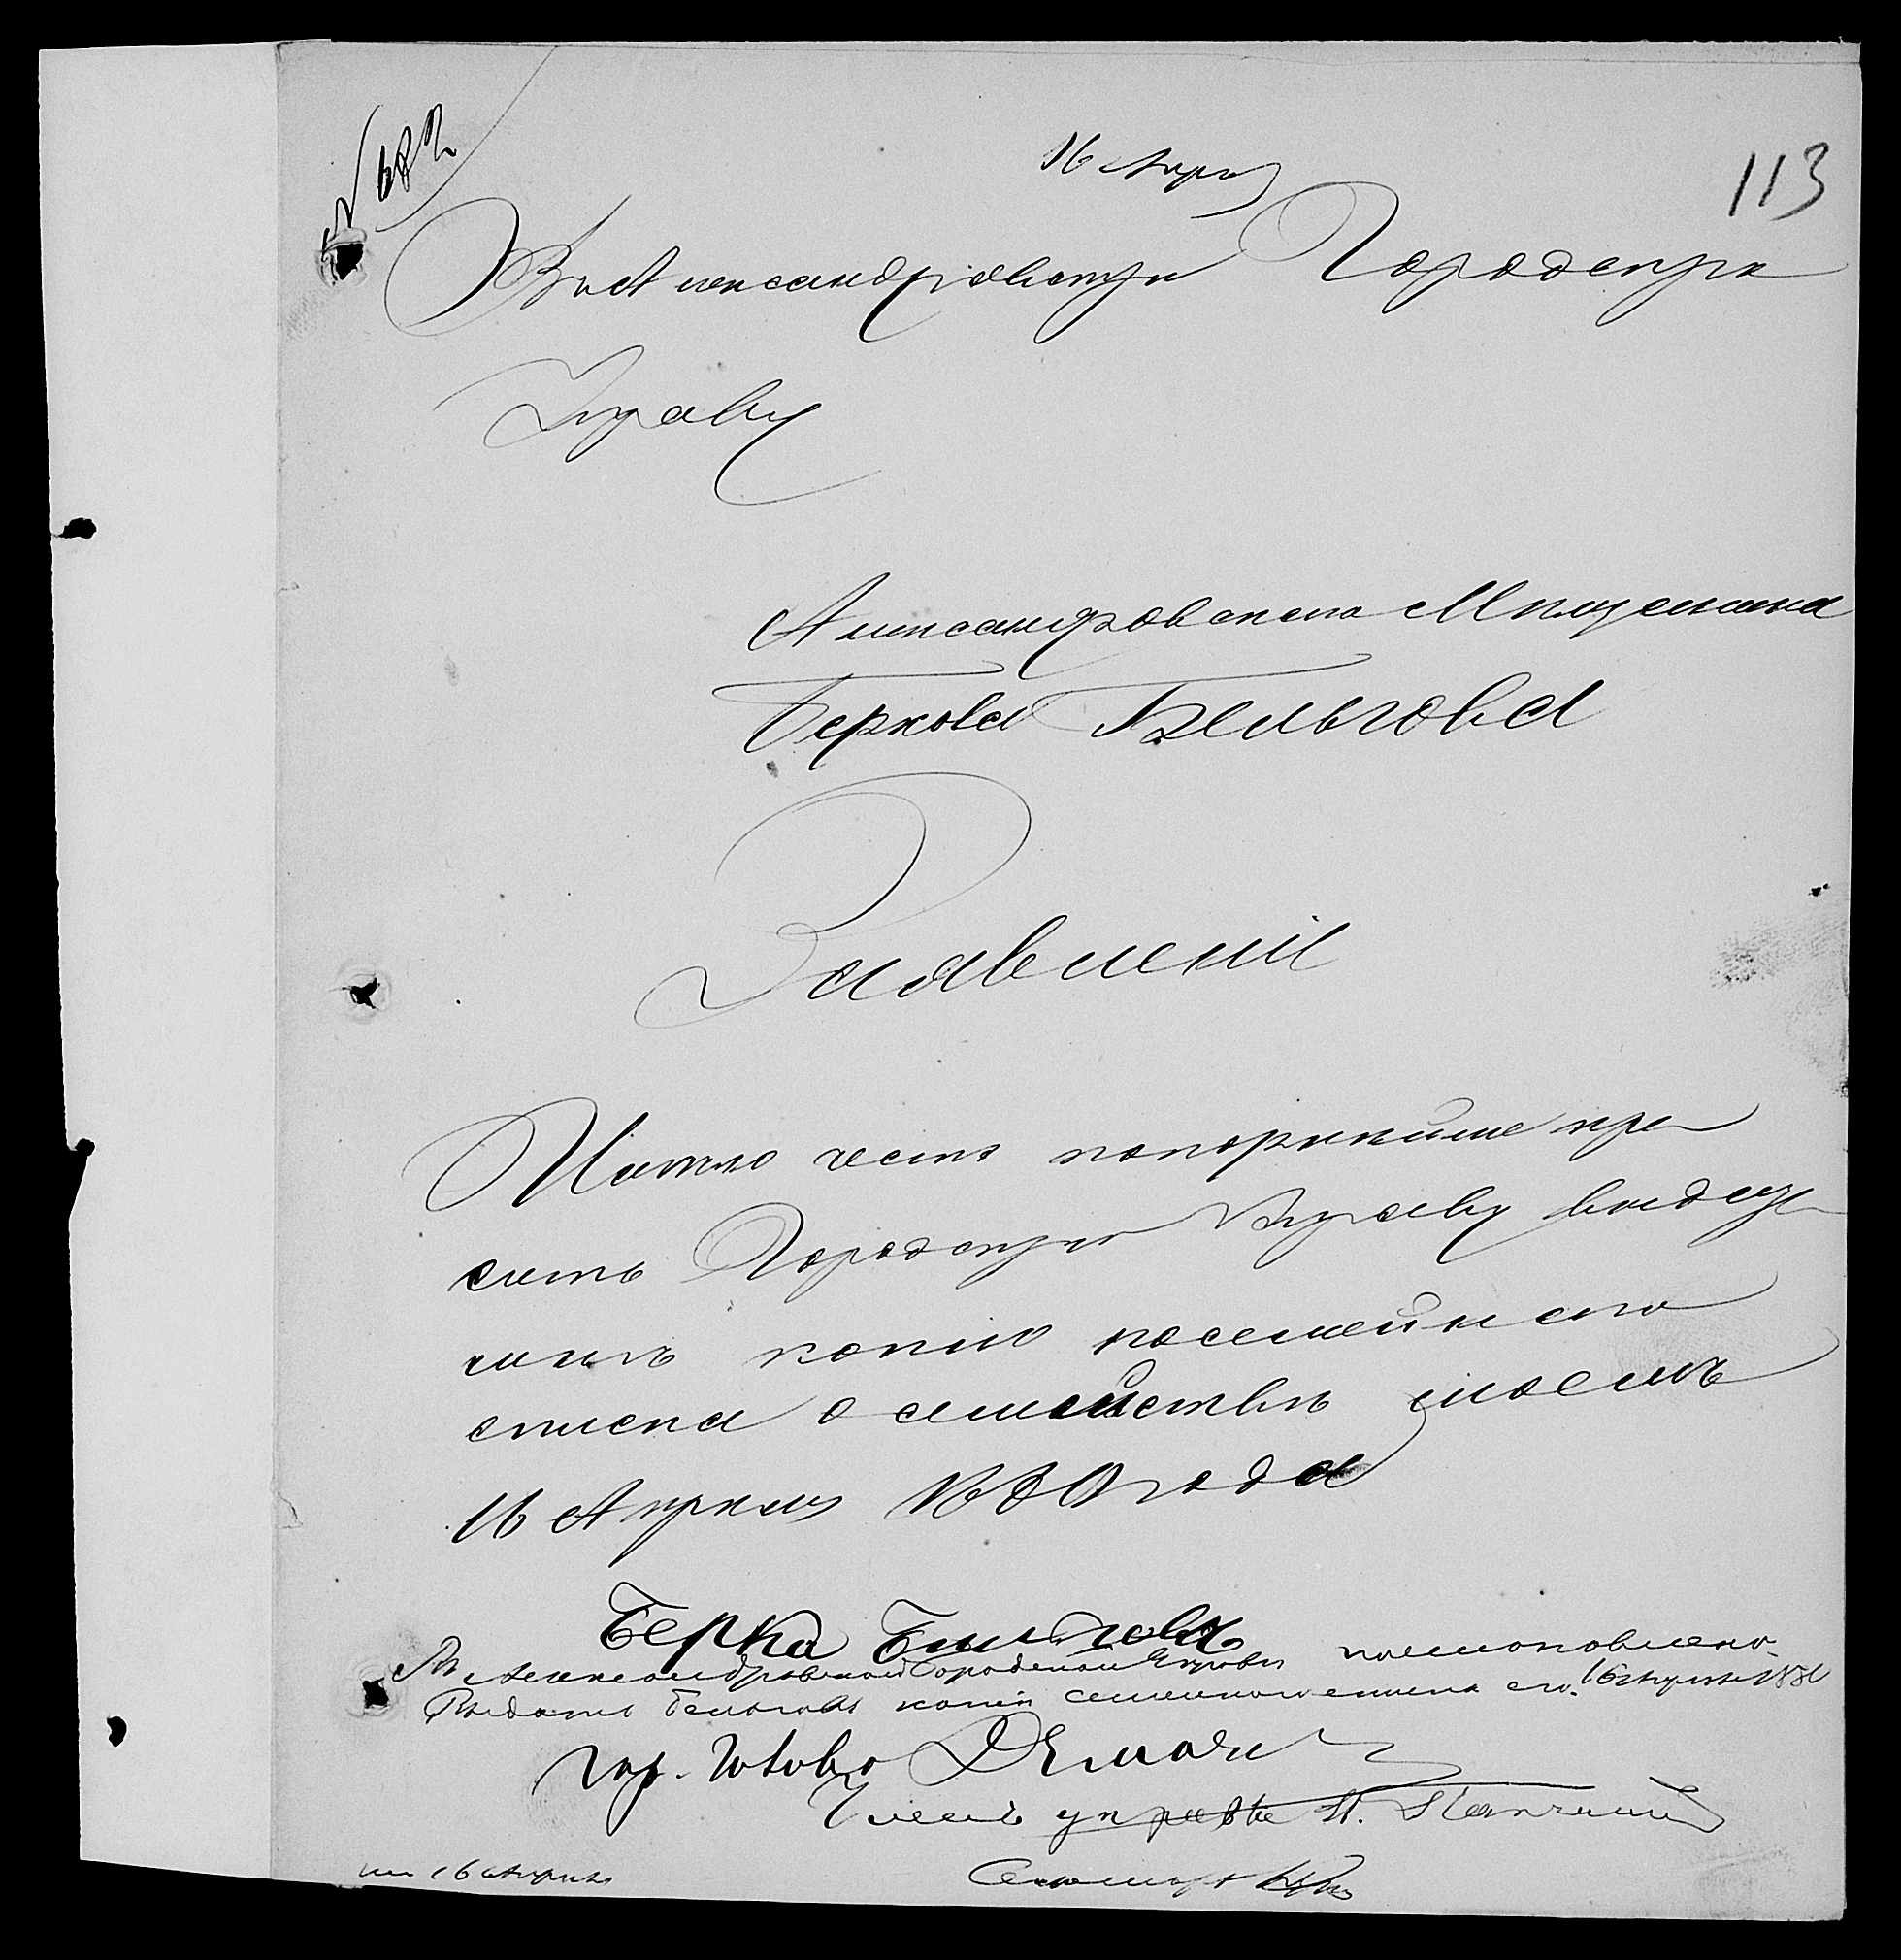 № 682
16 Апр
113
В Александровскую Городскую
Управу
Александровскаго Мещанина
Беркова Бельгова
Заявленіе
Имею честь покорнейше про
сить Городскую Управу выдать
мне копію посемейнаго
списка о семействе моемъ
16 Апреля 1880 года
Берка Бельговъ
Въ Александровской Городской Управе постановлено
Выдать Бельгову копію семейнаго списка его. 16 Апреля 1880
Гор. Голова
Членъ управы
16 Апреля
Секретарь